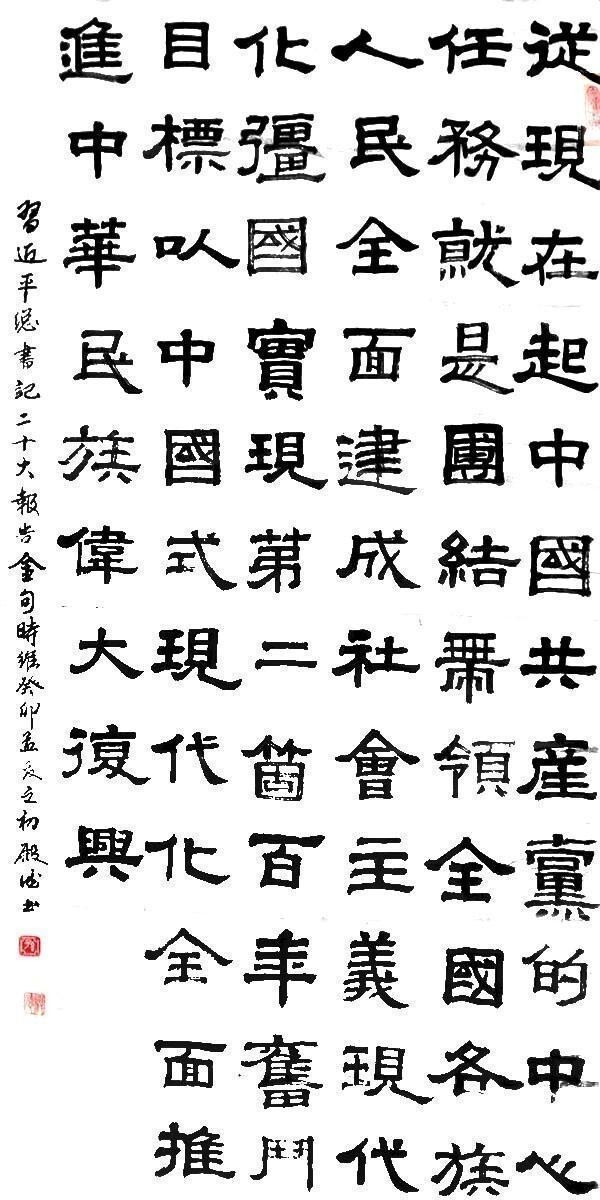 從現在起中國共産黨的中心
任務就是團結帶領全國各族
人民全面建成社會主義現代
化彊國實現第二箇百年奮鬥
目標以中國式現代化全面推
進中華民族偉大復興
習近平總書記二十大報告金句時維癸卯孟夏之初殿書